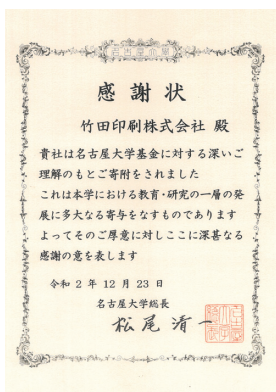 感謝状
竹田印刷株式会社 殿
貴社は名古屋大学基金に対する深いご
理解のもとご寄附をされました
これは本学における教育・研究の一層の発
展に多大なる寄与をなすものであります
よってそのご厚意に対しここに深甚なる
感謝の意を表します
令和 2 年 12 月 23 日
名古屋大学総長
松尾清一